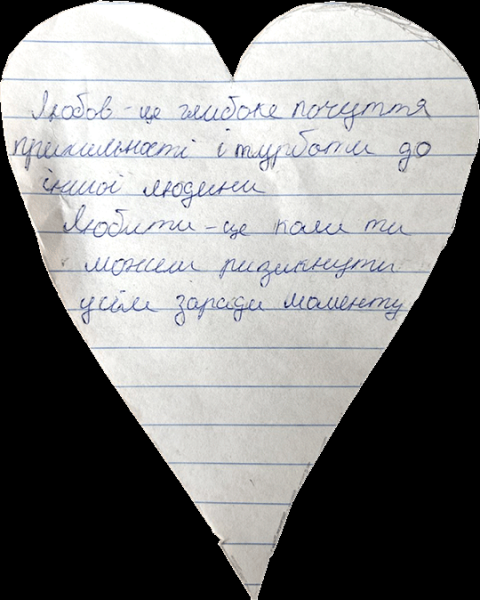 Любов - це глибоке почуття
прихильності і турботи до
іншої людини
Любити - це коли ти
можеш ризикнути
усім заради моменту